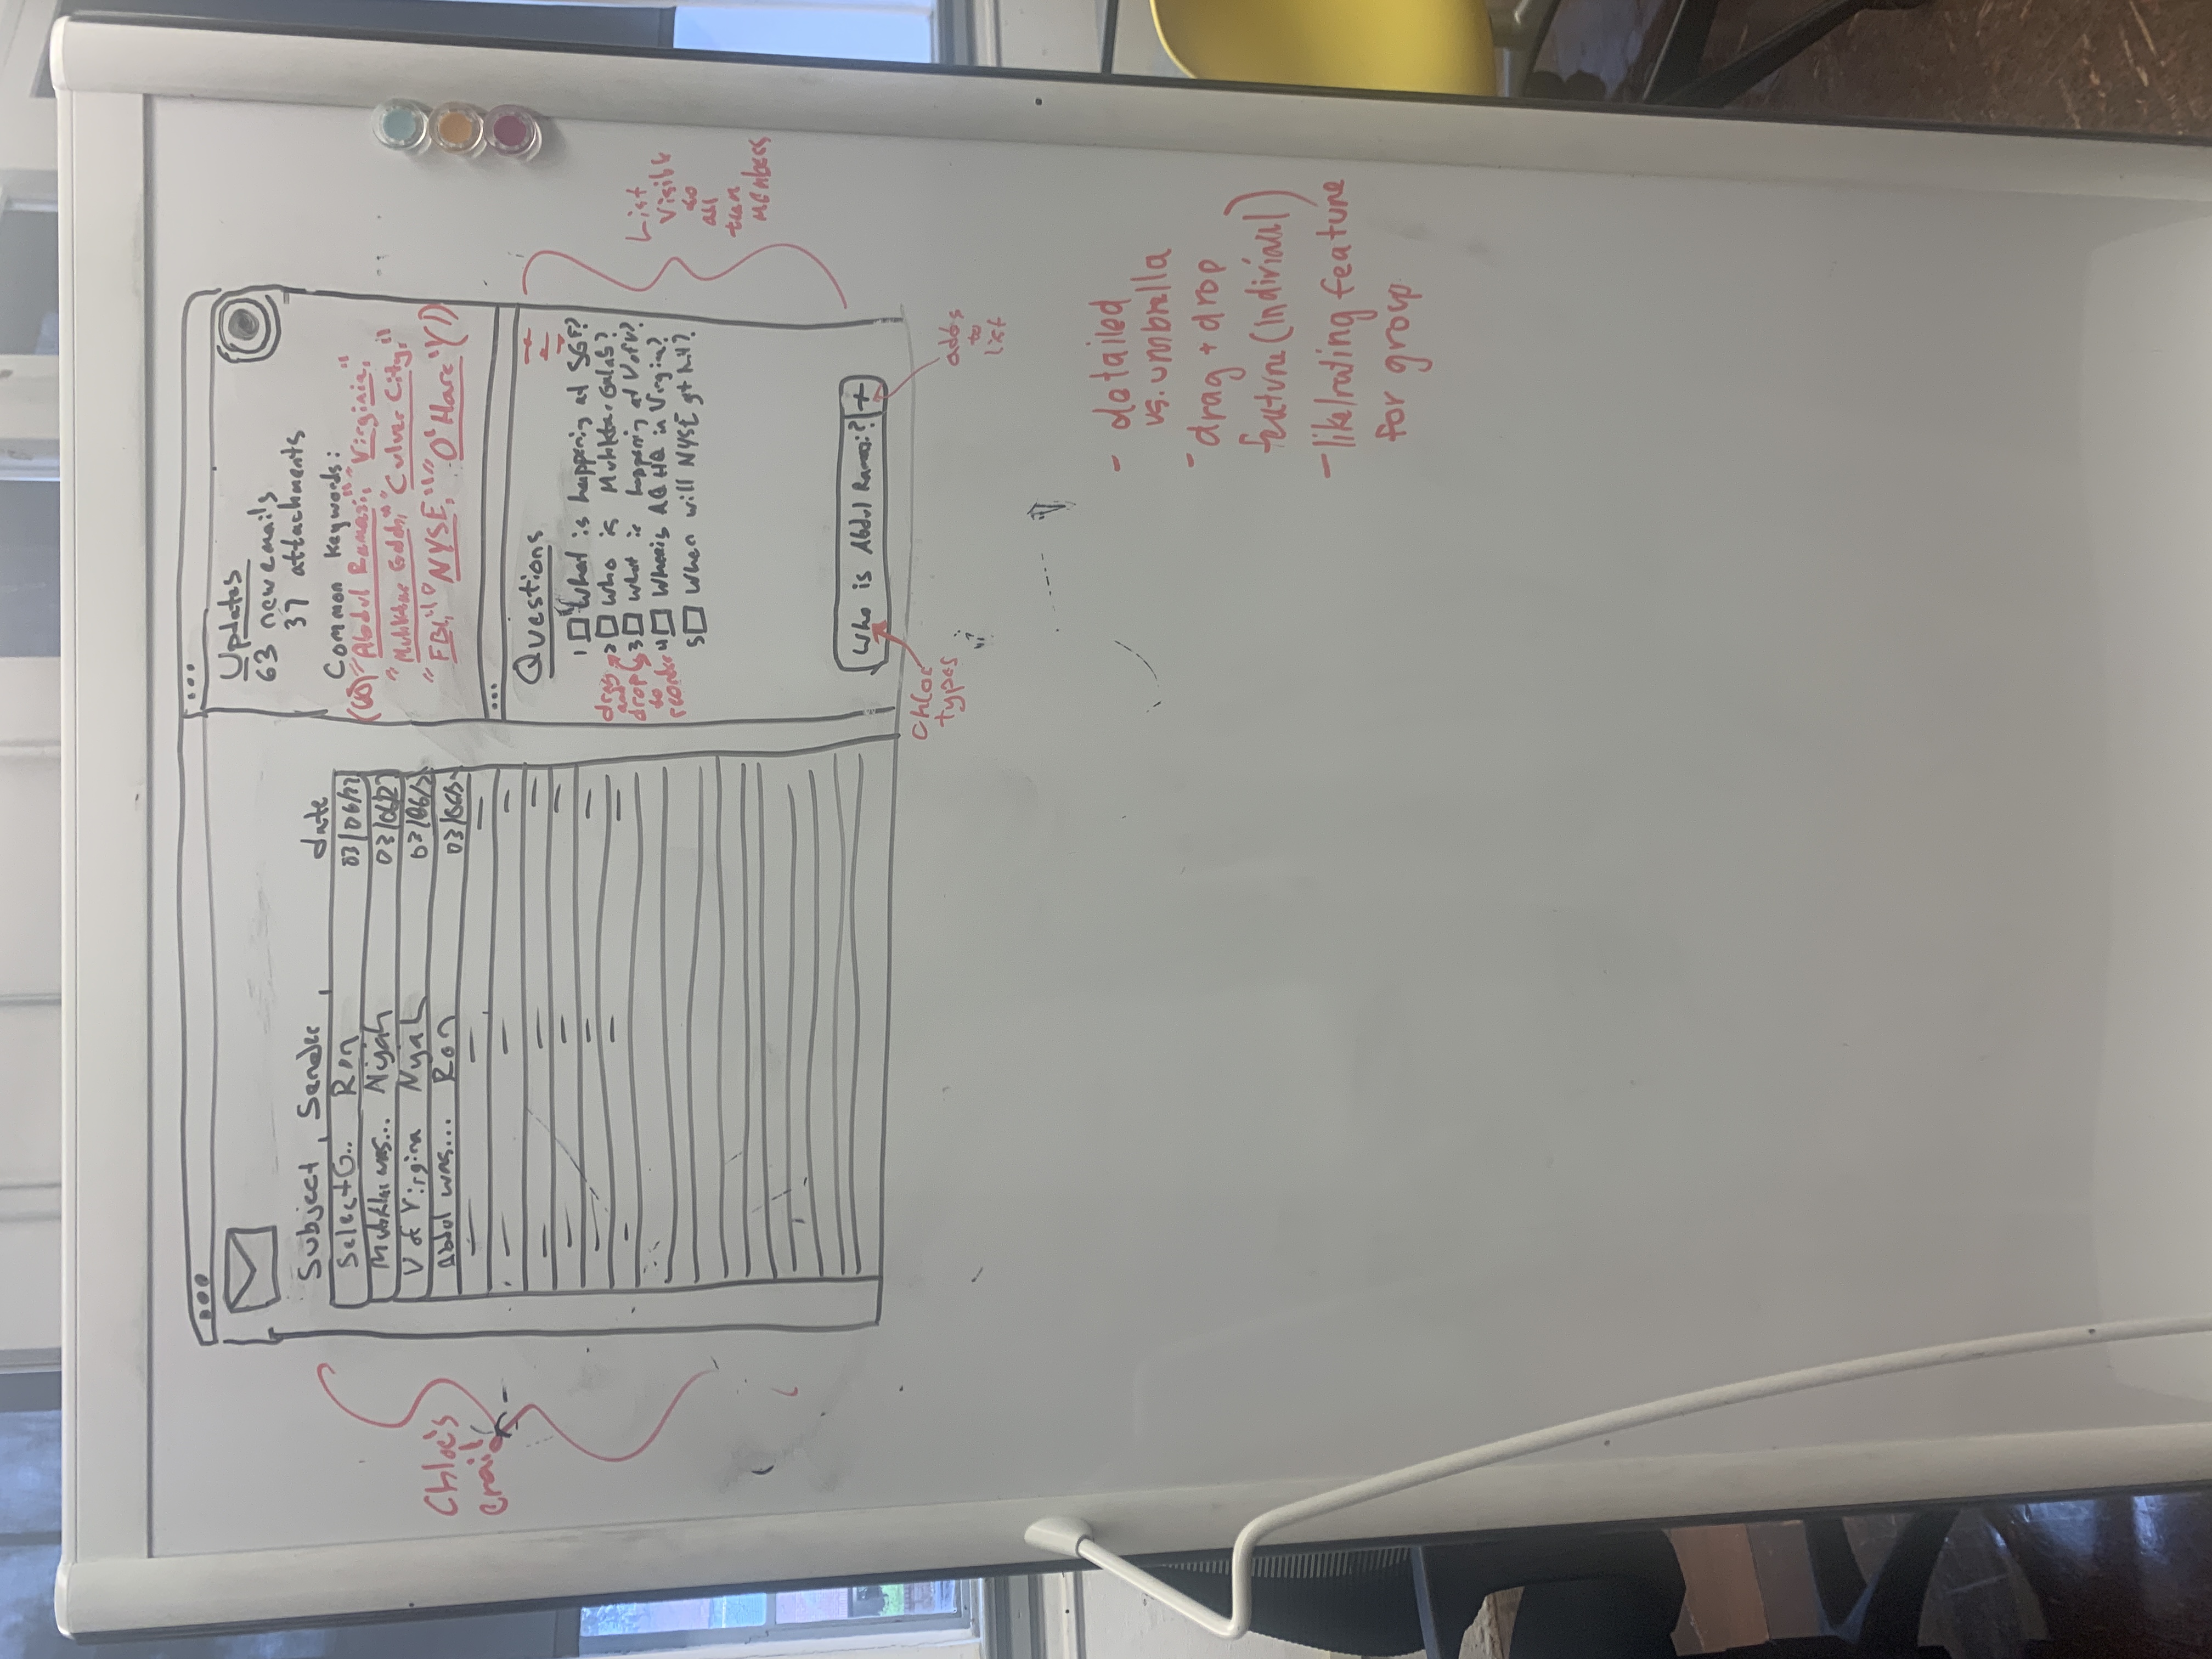 Subject, Sender, date
Select G.. Ron 03/06/27
Muhktar was... Niyah 03/06/27
V of Virgina Nyah 03/06/2
Abdul was... Ron 03/06/2
Chloe's
email
Updates
63 new emails
37 attachments
Common Keywords:
"Abdul Ramazi," "Virginia,"
"Muhktar Galab," "Culver City,"
"FBI," "NYSE," "O'Hare" (1)
Questions
1 What is happening at SGF?
2 Who is Muhktar Galab?
3 What is happening at V of V?
4 Where is AQ HQ in Virgin?
5 When will NYSE get hit?
drag
and
drop
to
reorder
List
visible
to
all
team
members
Who is Abdul Ramazi? +
Chloe
types
adds
to
list
- detailed
vs. umbrella
- drag + drop
feature (indiviaul)
- like/rating feature
for group